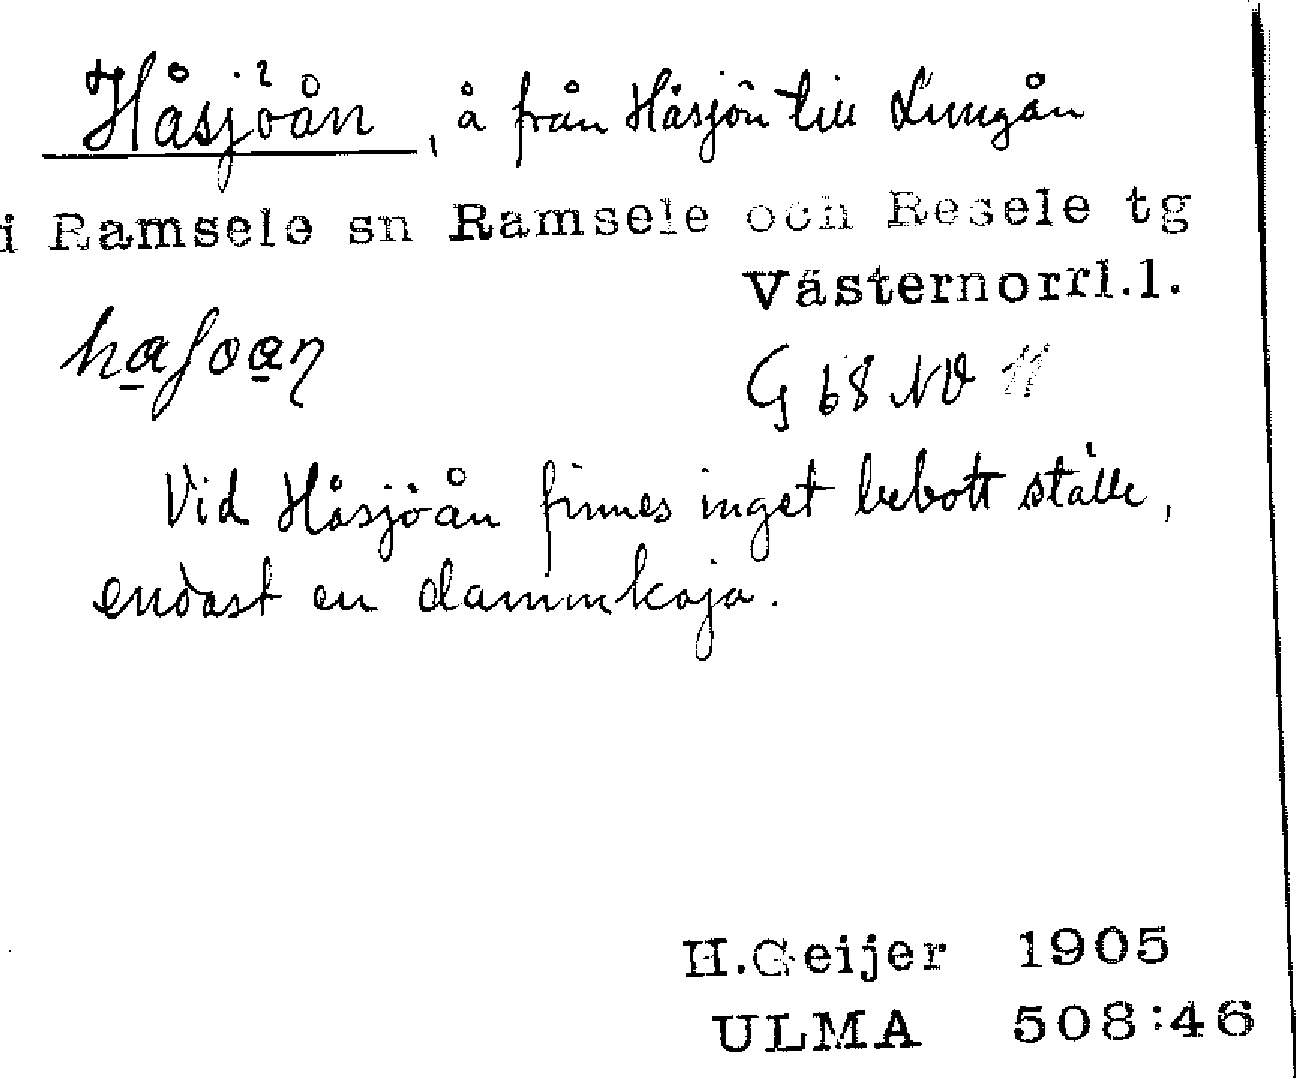 Håsjöån, å från Håsjön till Lungån
i Ramsele sn Ramsele och Resele tg
Västernorrl.l.
G 68 NV
Vid Håsjöån finnes inget bebott ställe,
endast en dammkoja.
H.Geijer 1905
ULMA 508:46